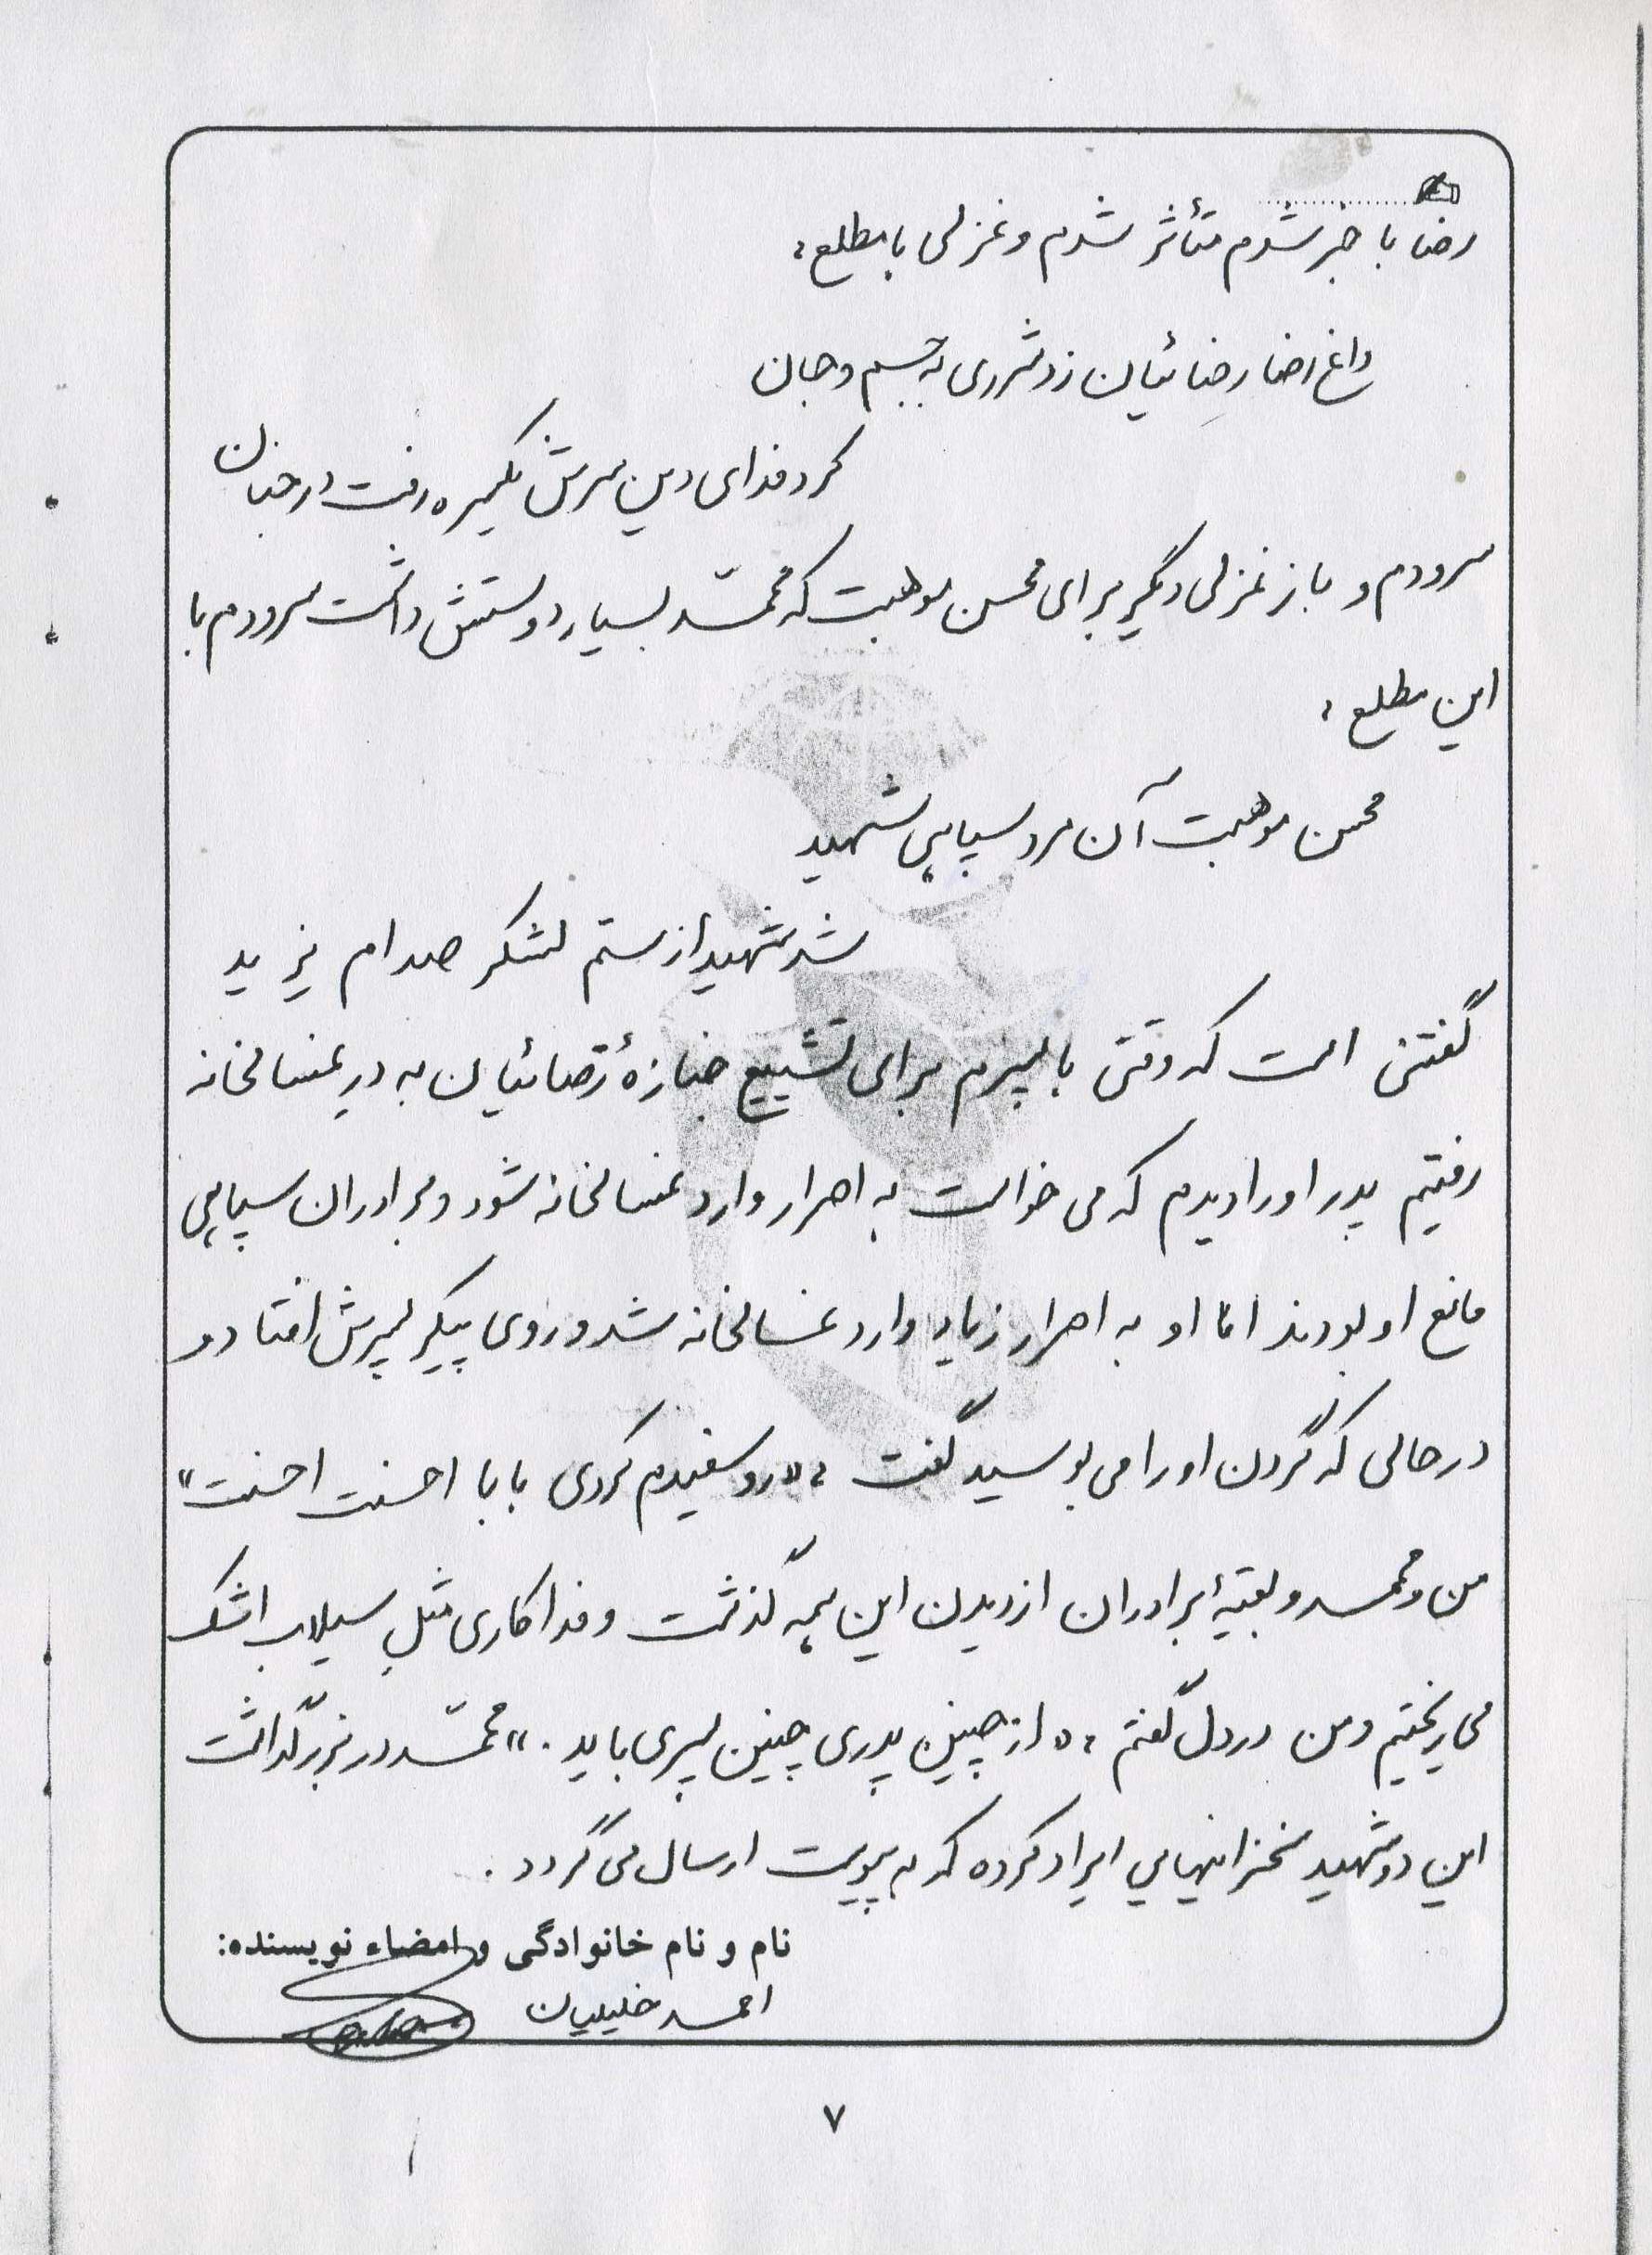 رضا با خبر شدم متأثر شدم و غزلی با مطلع :
داغ رضا رضائیان زد شرری به جسم و جان
کرد فدای دین سرش یکسره رفت در جنان
سرودم و باز غزلی دگر برای محسن موهبت که محمّد بسیار دوستش داشت سرودم با
این مطلع :
محسن موهبت آن مرد سپاهی شهید
شد شهید از ستم لشکر صدام یزید
گفتنی است که وقتی با پسرم برای تشییع جنازهٔ رضائیان به در غسالخانه
رفتیم پدر او را دیدم که می خواست به اصرار وارد غسالخانه شود و برادران سپاهی
مانع او بودند امّا او به اصرار زیاد وارد غسالخانه شد و روی پیکر پسرش افتاد و
در حالی که گردن او را می بوسید گفت : «رو سفیدم کردی بابا احسنت احسنت»
من و محمد و بقیهٔ برادران از دیدن این همه گذشت و فداکاری مثل سیلاب اشک
می ریختیم و من در دل گفتم : « از چنین پدری چنین پسری باید . » محمّد در بزرگداشت
این دو شهید سخنرانیهایی ایراد کرده که به پیوست ارسال می گردد .
نام و نام خانوادگی و امضاء نویسنده:
احمد خلیلیان
۷